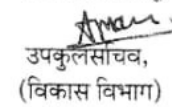 उपकुलसचिव,
(विकास विभाग)